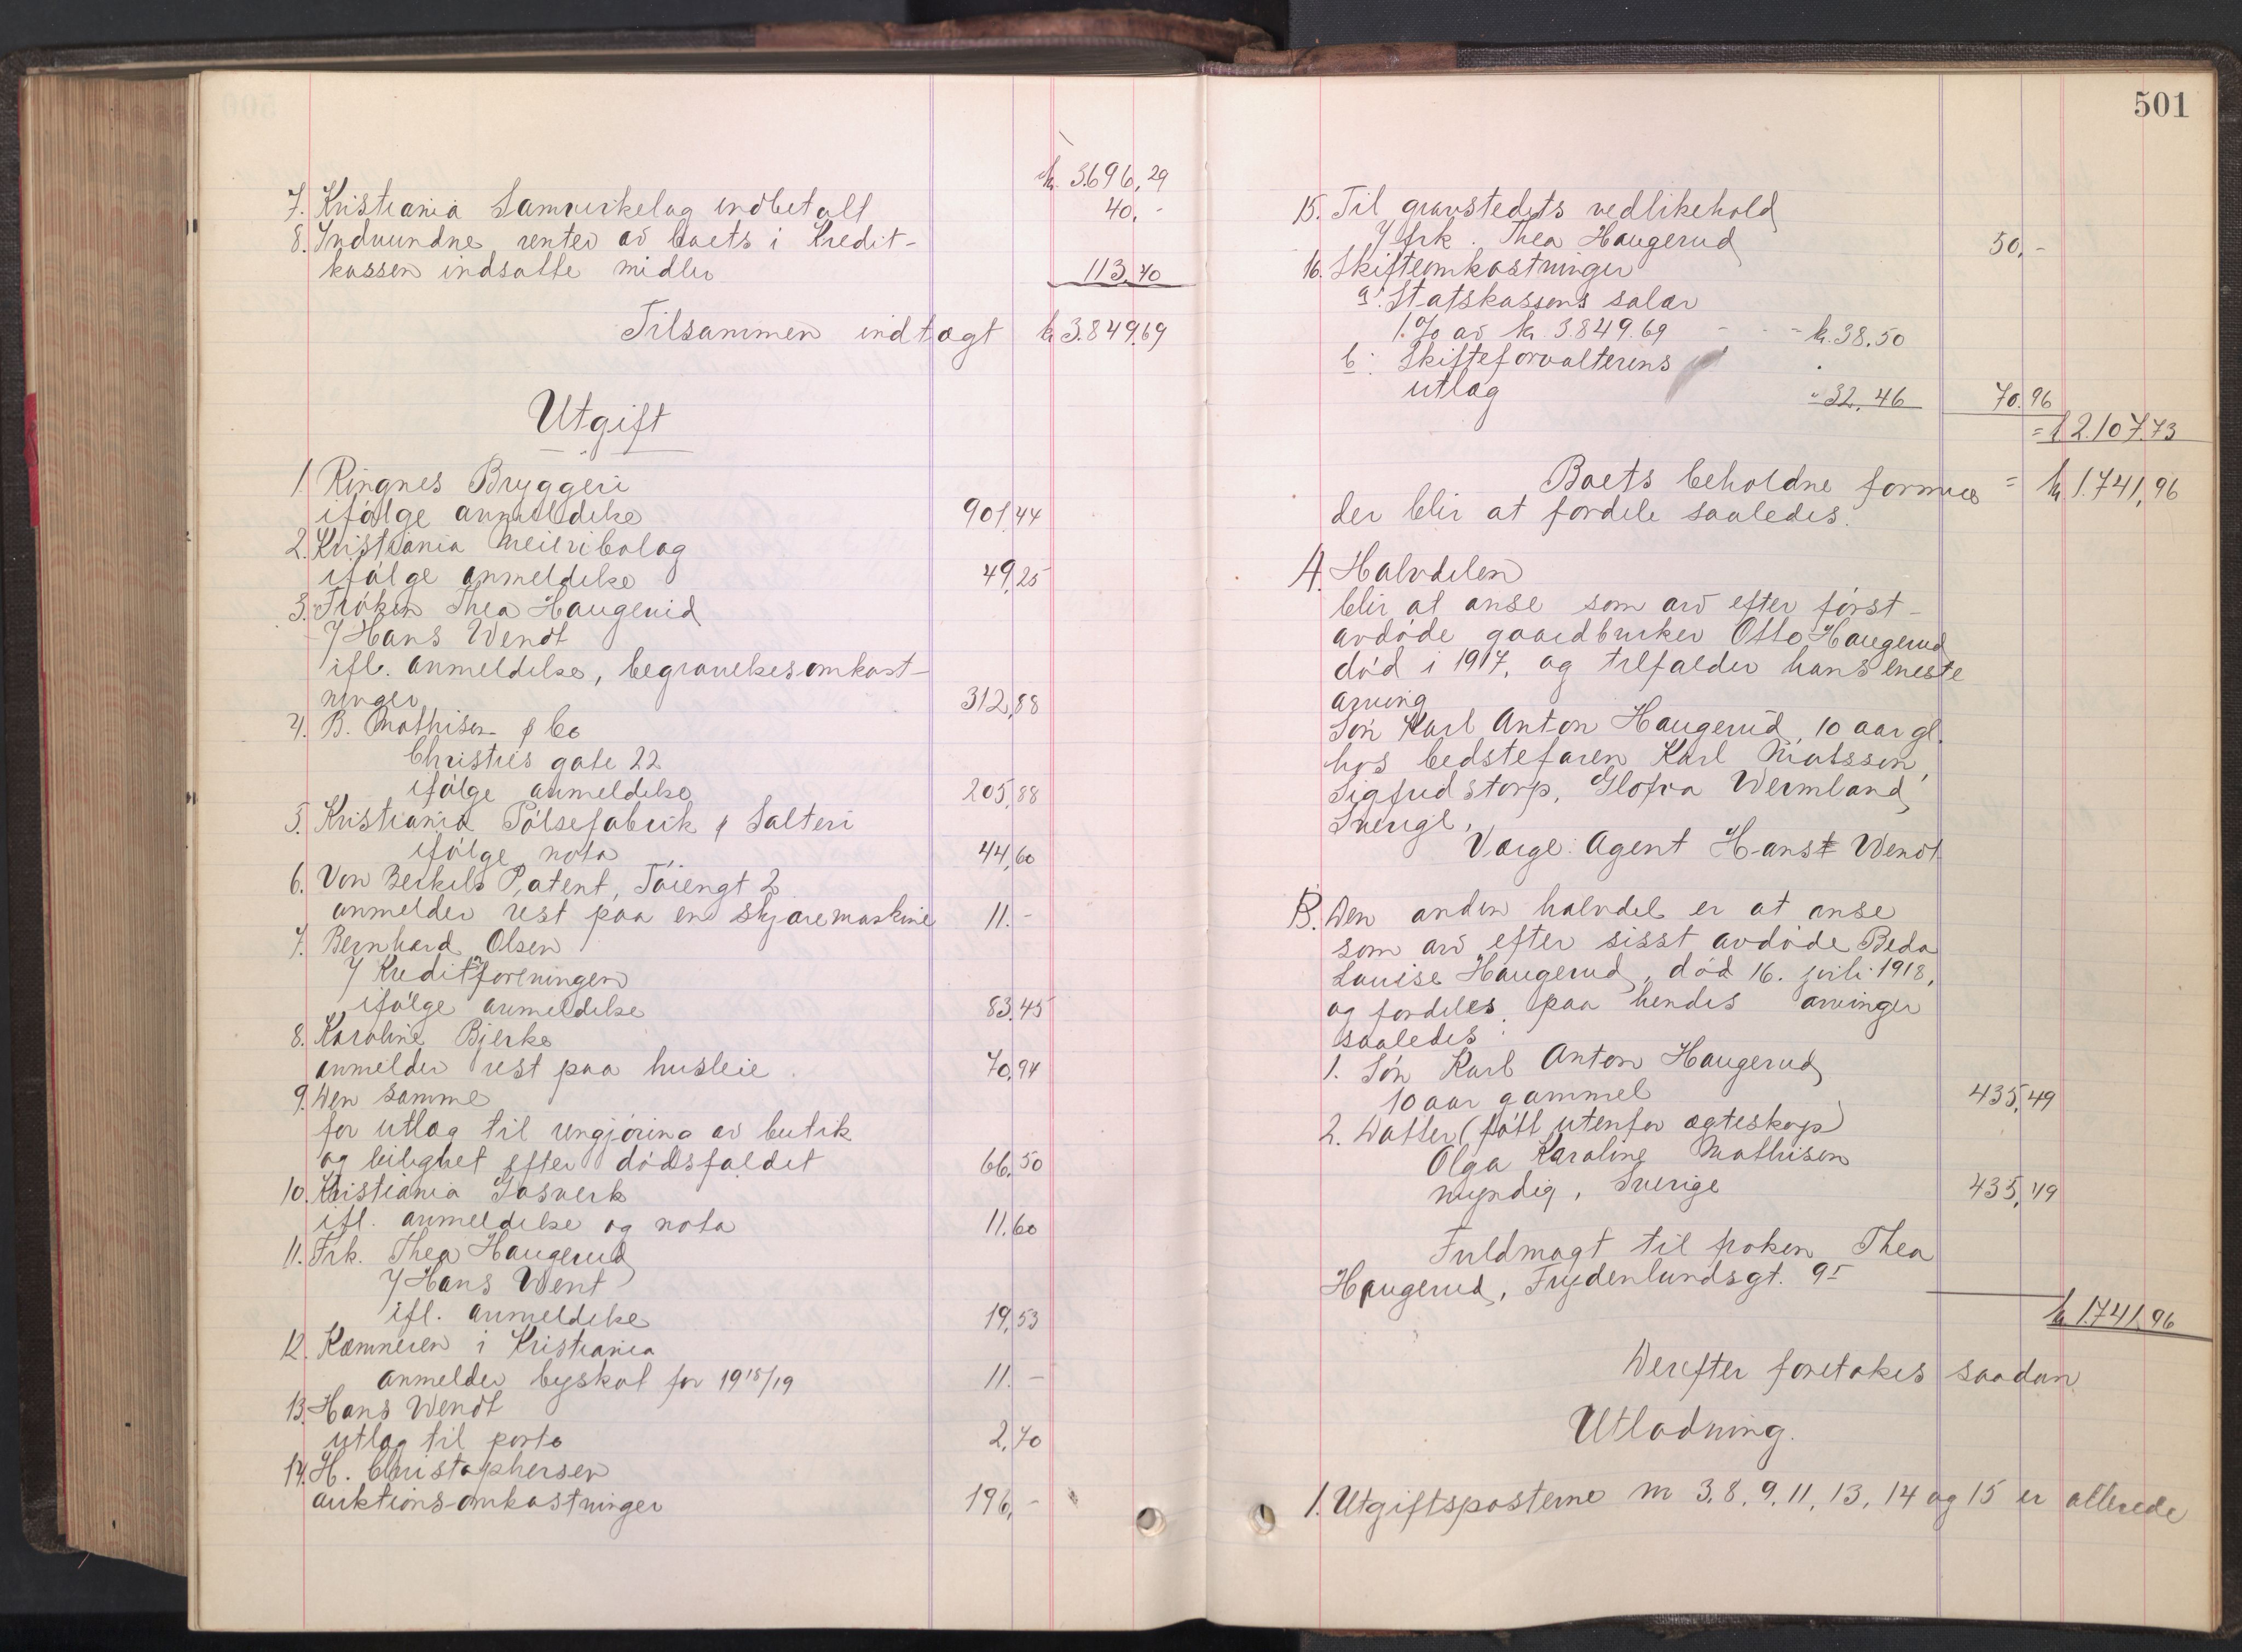 kr. 3.696,29
7. Kristiania Samvirkelag indbetalt 40,-
8. Indvundne renter av boets i Kredit-
kassen indsatte midler 113,40
Tilsammen indtægt kr 3.849,69
Utgift
1. Ringnes Bryggeri
ifølge anmeldelse 901,44
2. Kristiania Meieribolag
ifølge anmeldelse 49,25
3. Frøken Thea Haugerud
v/ Hans Wendt
ifl. anmeldelse, begravelsesomkost-
ninger 312,88
4. B. Mathisen & Co
Christies gate 22
ifølge anmeldelse 205,88
5. Kristiania Pølsefabrik & Salteri
ifølge nota 44,60
6. Von Berkels Patent, Tøiengt 2
anmelder rest paa en skjæremaskine 11.-
7. Bernhard Olsen
v/ Kreditforeningen
ifølge anmeldelse 83,45
8. Karoline Bjerke
anmelder rest paa husleie 70,94
9. Den samme
for utlæg til rengjøring av butik
og leilighet efter dødsfaldet 66,50
10. Kristiania Gasverk
ifl. anmeldelse og nota 11.60
11. Frk. Thea Haugerud
v/ Hans Went
ifl. anmeldelse 19,53
12. Kæmneren i Kristiania
anmelder byskat for 1918/19 11.-
13. Hans Wendt
utlæg til porto 2,70
14. H. Christophersen
auktionsomkostninger 196,-
501
15. Til gravstedets vedlikehold
v/ frk. Thea Haugerud 50,-
16. Skifteomkostninger
a: Statskassens salær
1. % av kr. 3.849.69 - - = kr. 38.50
b: Skifteforvalterens
utlæg " 32,46 70.96
= kr 2.107.73
Boets beholdne formue = kr 1.741,96
der blir at fordele saaledes:
A. Halvdelen
blir at anse som arv efter først-
avdøde gaardbruker Otto Haugerud
død i 1917, og tilfalder hans eneste
arving
Søn Karl Anton Haugerud, 10 aar gl.
hos bedstefaren Karl Matsson,
Sigfridstorp, Glofva Wermland,
Sverige,
Værge: Agent Hans Wendt
B. Den anden halvdel er at anse
som arv efter sisst avdøde Beda
Louise Haugerud, død 16. juli 1918,
og fordeles paa hendes arvinger
saaledes:
1. Søn Karl Anton Haugerud
10 aar gammel 435,49
2. Datter (født utenfor ægteskap)
Olga Karoline Mathisen
myndig, Sverige 435,49
Fuldmagt til frøken Thea
Haugerud, Frydenlundsgt. 9 I
kr 1741,96
Derefter foretakes saadan
Utlodning.
1. Utgiftsposterne nr 3, 8, 9, 11, 13, 14 og 15 er allerede